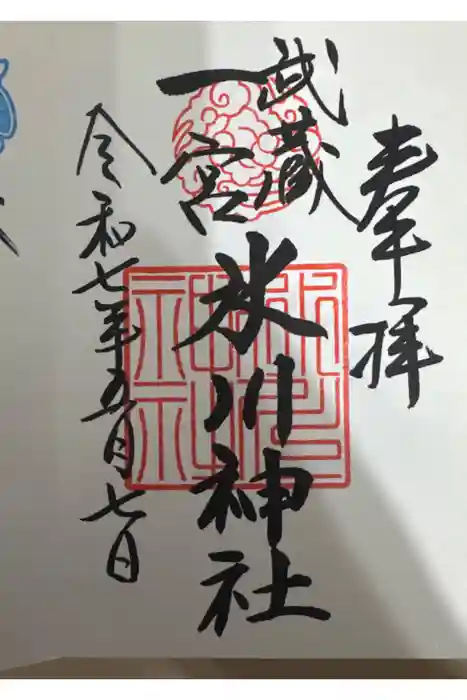 奉拝
武蔵
一宮
氷川神社
令和七年五月七日